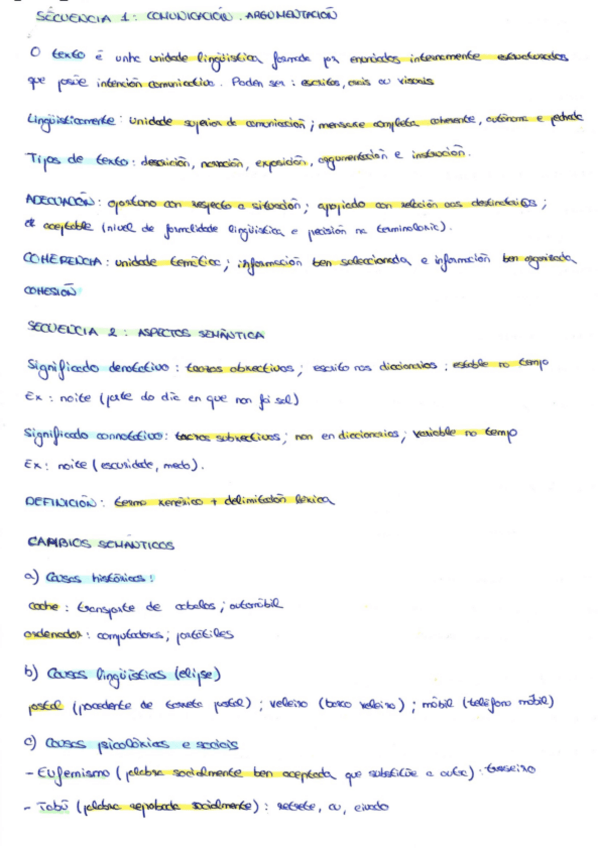 SECUENCIA 1: COMUNICACIÓN. ARGUMENTACIÓN
O texto é unha unidade lingüística formada por enunciados internamente estruturados
que posúe intención comunicativa. Poden ser: escritos, orais ou visuais
Lingüisticamente: unidade superior de comunicación; mensaxe completa, coherente, autónoma e pechada
Tipos de texto: descrición, narración, exposición, argumentación e instrución.
ADECUACIÓN: oportuno con respecto a situación; apropiado con relación aos destinatarios;
aceptable (nivel de formalidade lingüística e precisión na terminoloxía).
COHERENCIA: unidade temática; información ben seleccionada e información ben organizada
COHESIÓN
SECUENCIA 2: ASPECTOS SEMÁNTICA
Significado denotativo: trazos obxectivos; escrito nos diccionarios; estable no tempo
Ex: noite (parte do día en que non hai sol)
Significado connotativo: trazos subxectivos; non en diccionarios; variable no tempo
Ex: noite (escuridade, medo).
DEFINICIÓN: termo xenérico + delimitación léxica
CAMBIOS SEMÁNTICOS
a) Causas históricas:
coche: transporte de cabalos; automóbil
ordenador: computadores; portátiles
b) Causas lingüísticas (elipse)
postal (procedente de tarxeta postal); veleiro (barco veleiro); móbil (teléfono móbil)
c) Causas psicolóxicas e sociais
- Eufemismo (palabra socialmente ben aceptada que substitúe a outra): traseiro
- Tabú (palabra reprobada socialmente): retrete, cu,